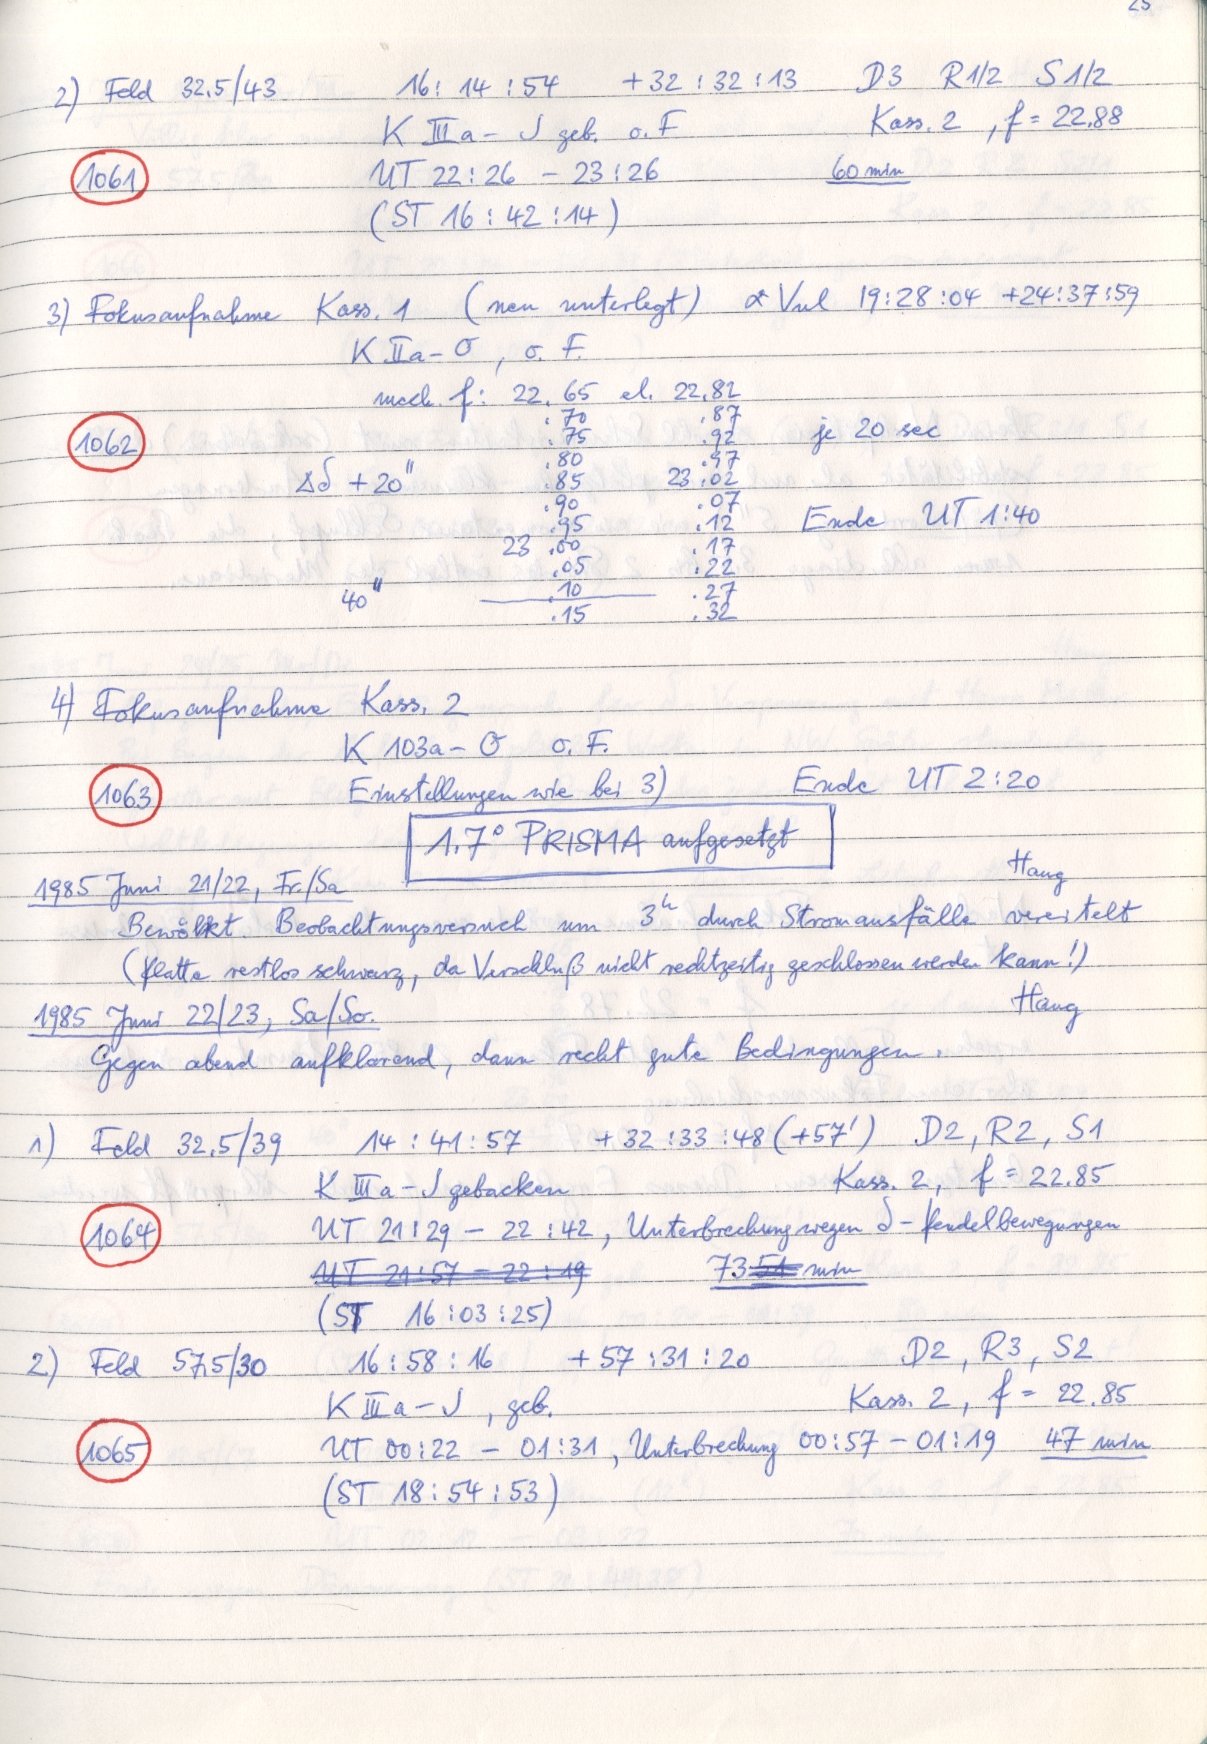 25
2) Feld 32.5/43 16:14:54 +32:32:13 D3 R1/2 S1/2
K IIIa-J geb. o. F Kass. 2, f = 22.88
1061 UT 22:26 - 23:26 60 min
(ST 16:42:14)
3) Fokusaufnahme Kass. 1 (neu unterlegt) α Vul 19:28:04 +24:37:59
K IIa-O, o. F.
mech. f: 22.65 el. 22.82
.70 .87
1062 .75 .92 je 20 sec
.80 .97
Δδ +20" .85 23.02
.90 .07
.95 .12 Ende UT 1:40
23.00 .17
.05 .22
40" .10 .27
.15 .32
4) Fokusaufnahme Kass. 2
K 103a-O o. F.
1063 Einstellungen wie bei 3) Ende UT 2:20
1.7° PRISMA aufgesetzt
1985 Juni 21/22, Fr./Sa Haug
Bewölkt. Beobachtungsversuch um 3h durch Stromausfälle vereitelt
(Platte restlos schwarz, da Verschluß nicht rechtzeitig geschlossen werden kann!)
1985 Juni 22/23, Sa/So. Haug
Gegen abend aufklarend, dann recht gute Bedingungen.
1) Feld 32.5/39 14:41:57 +32:33:48 (+57') D2, R2, S1
K IIIa-J gebacken Kass. 2, f = 22.85
1064 UT 21:29 - 22:42, Unterbrechung wegen δ-Pendelbewegungen
UT 21:57 - 22:19 73 51 min
(ST 16:03:25)
2) Feld 57.5/30 16:58:16 +57:31:20 D2, R3, S2
K IIIa-J, geb. Kass. 2, f = 22.85
1065 UT 00:22 - 01:31, Unterbrechung 00:57 - 01:19 47 min
(ST 18:54:53)